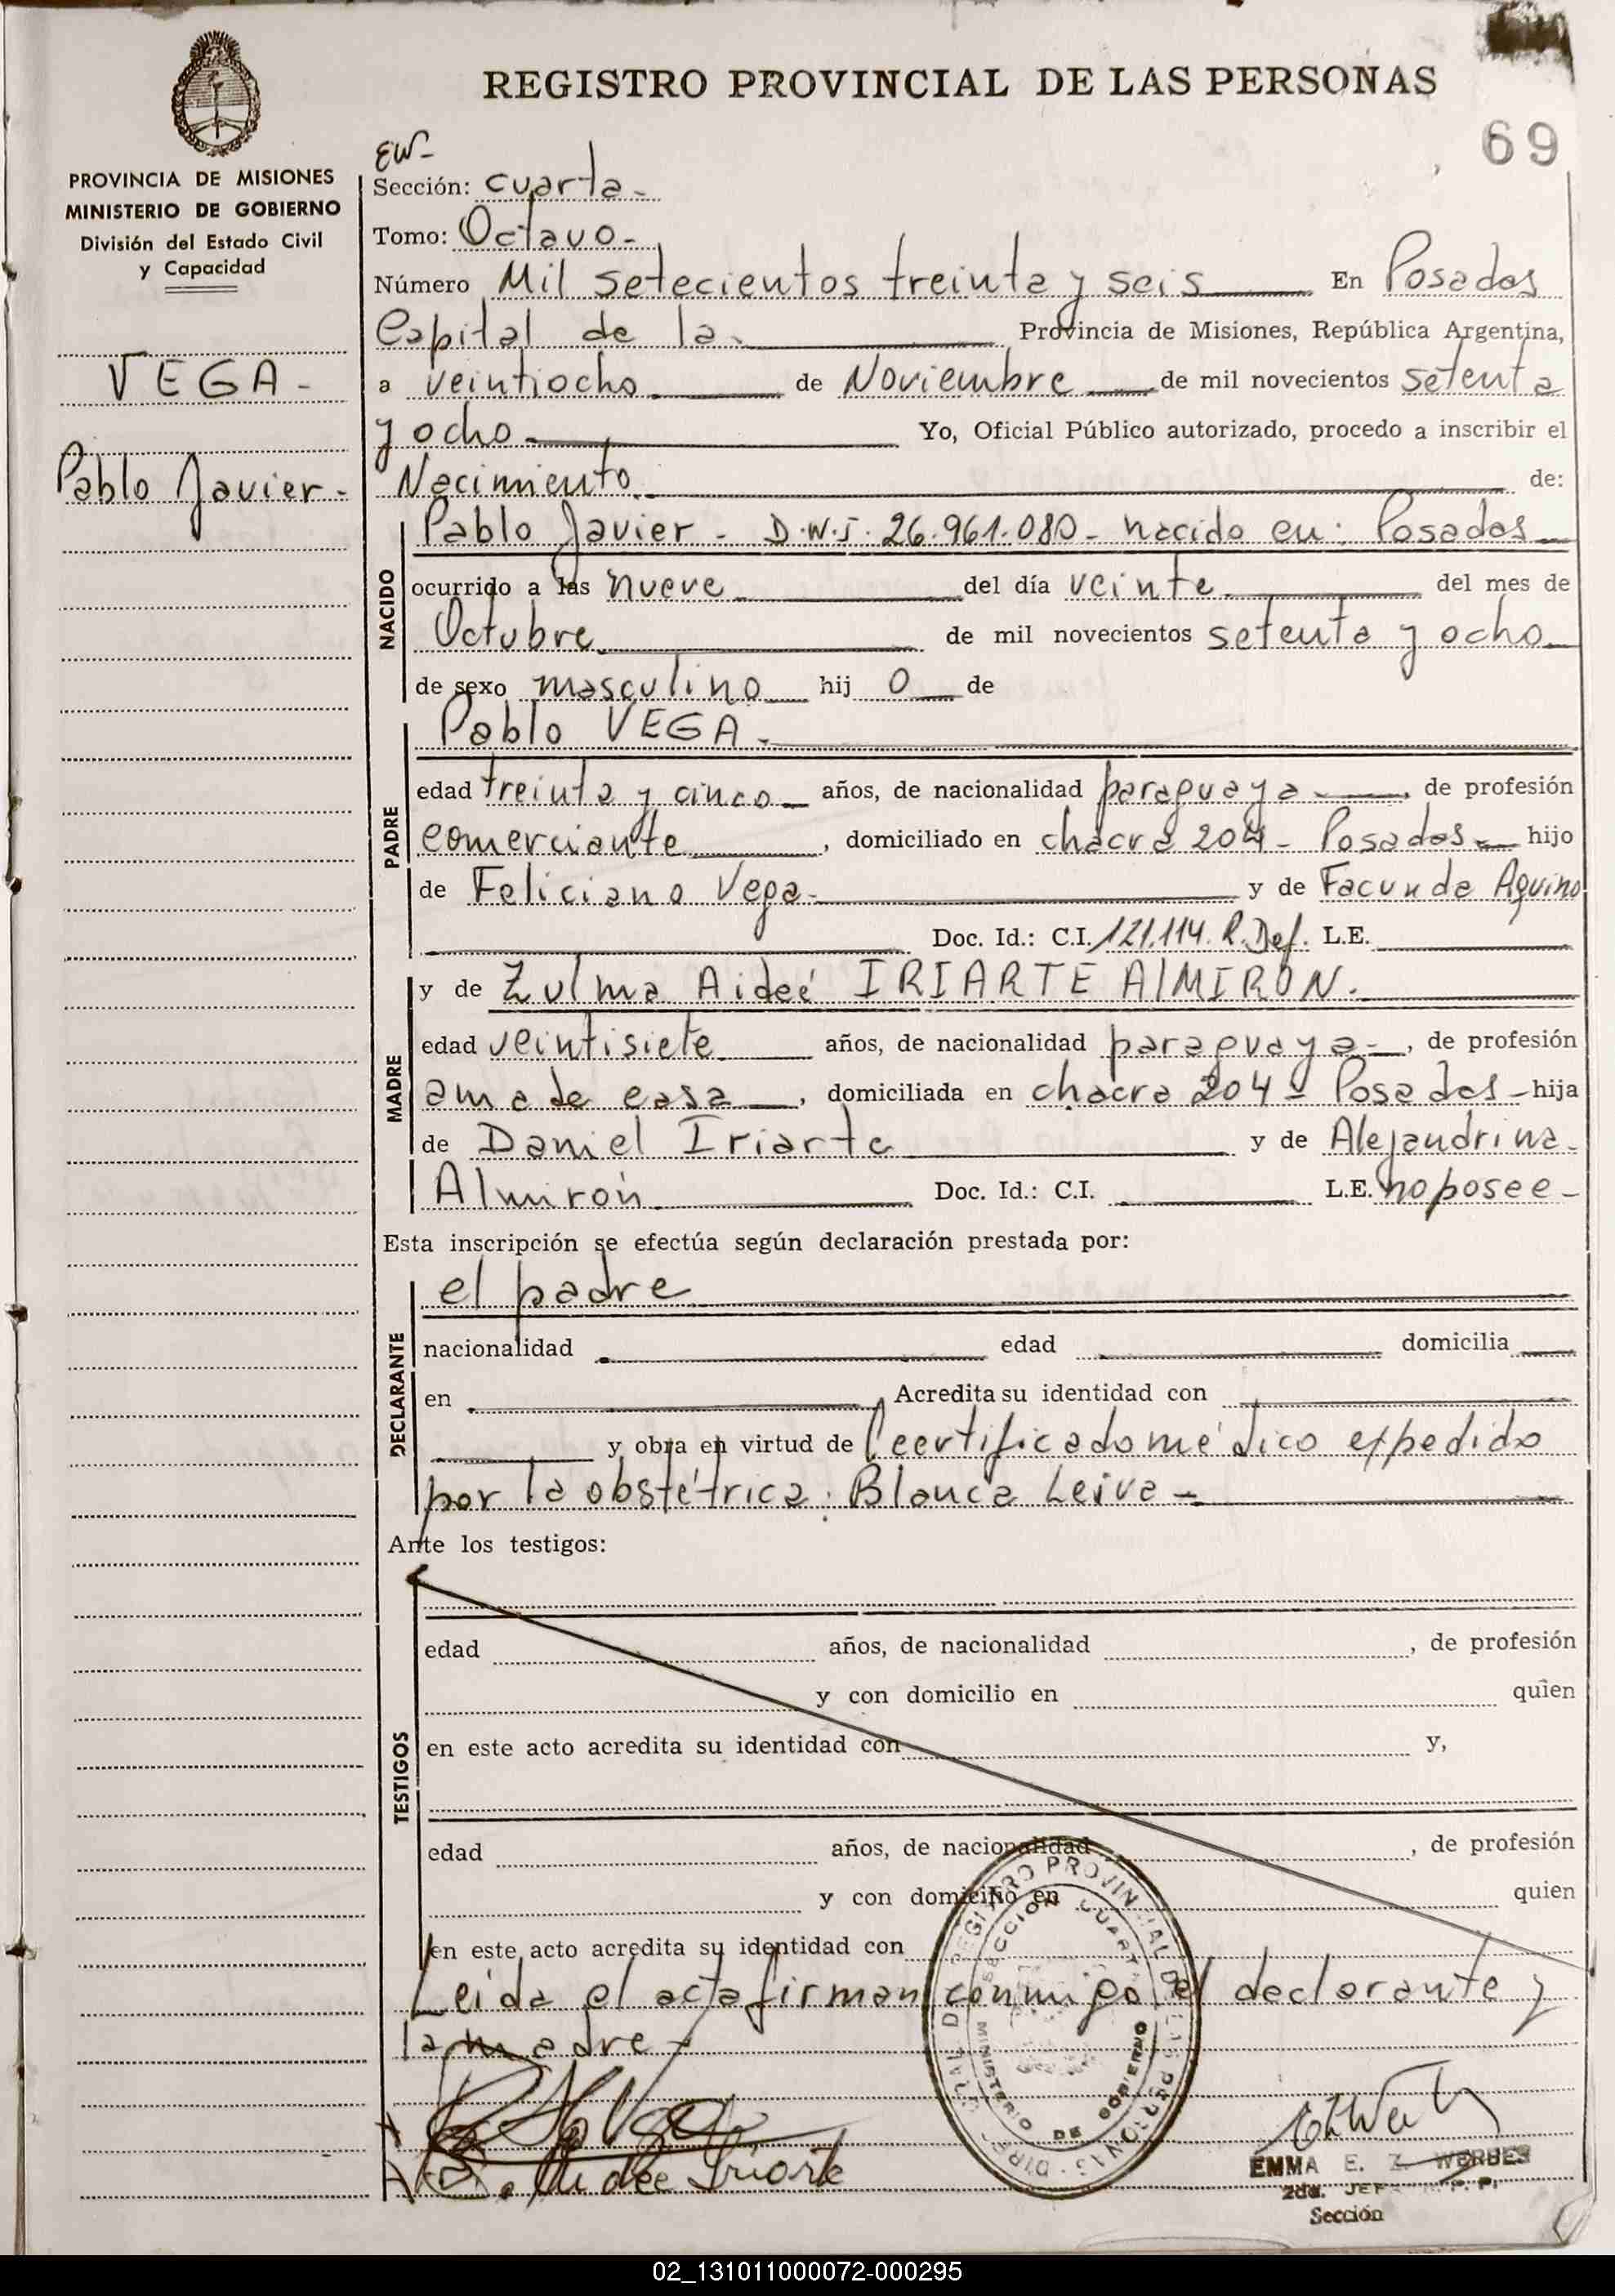 REGISTRO PROVINCIAL DE LAS PERSONAS
69
PROVINCIA DE MISIONES
MINISTERIO DE GOBIERNO
División del Estado Civil
y Capacidad
VEGA -
Pablo Javier -
EW-
Sección: cuarta -
Tomo: Octavo -
Número Mil setecientos treinta y seis En Posadas
Capital de la Provincia de Misiones, República Argentina,
a veintiocho de Noviembre de mil novecientos setenta
y ocho Yo, Oficial Público autorizado, procedo a inscribir el
Nacimiento de:
NACIDO
Pablo Javier - D.N.I. 26.961.080 - nacido en: Posadas
ocurrido a las nueve del día veinte del mes de
Octubre de mil novecientos setenta y ocho
de sexo masculino hij o de
PADRE
Pablo VEGA -
edad treinta y cinco años, de nacionalidad paraguaya, de profesión
comerciante, domiciliado en chacra 204 - Posadas - hijo
de Feliciano Vega - y de Facunda Aquino
Doc. Id.: C.I. 121.114. R. Def. L.E.
MADRE
y de Zulma Aideé IRIARTE AlMIRON.
edad veintisiete años, de nacionalidad paraguaya -, de profesión
ama de casa, domiciliada en chacra 204 - Posadas - hija
de Daniel Iriarte y de Alejandrina
Almirón Doc. Id.: C.I. L.E. no posee -
Esta inscripción se efectúa según declaración prestada por:
DECLARANTE
el padre
nacionalidad edad domicilia
en Acredita su identidad con
y obra en virtud de certificado médico expedido
por la obstétrica: Blanca Leiva -
Ante los testigos:
TESTIGOS
edad años, de nacionalidad , de profesión
y con domicilio en quien
en este acto acredita su identidad con y,
edad años, de nacionalidad , de profesión
y con domicilio en quien
en este acto acredita su identidad con
Leida el acta firman conmigo el declarante y
la madre -
REGISTRO PROVINCIAL DE LAS PERSONAS
SECCION CUARTA
MINISTERIO DE GOBIERNO
Aidee Iriarte
EMMA E. Z. WERBES
2da. JEF
Sección
02_131011000072-000295